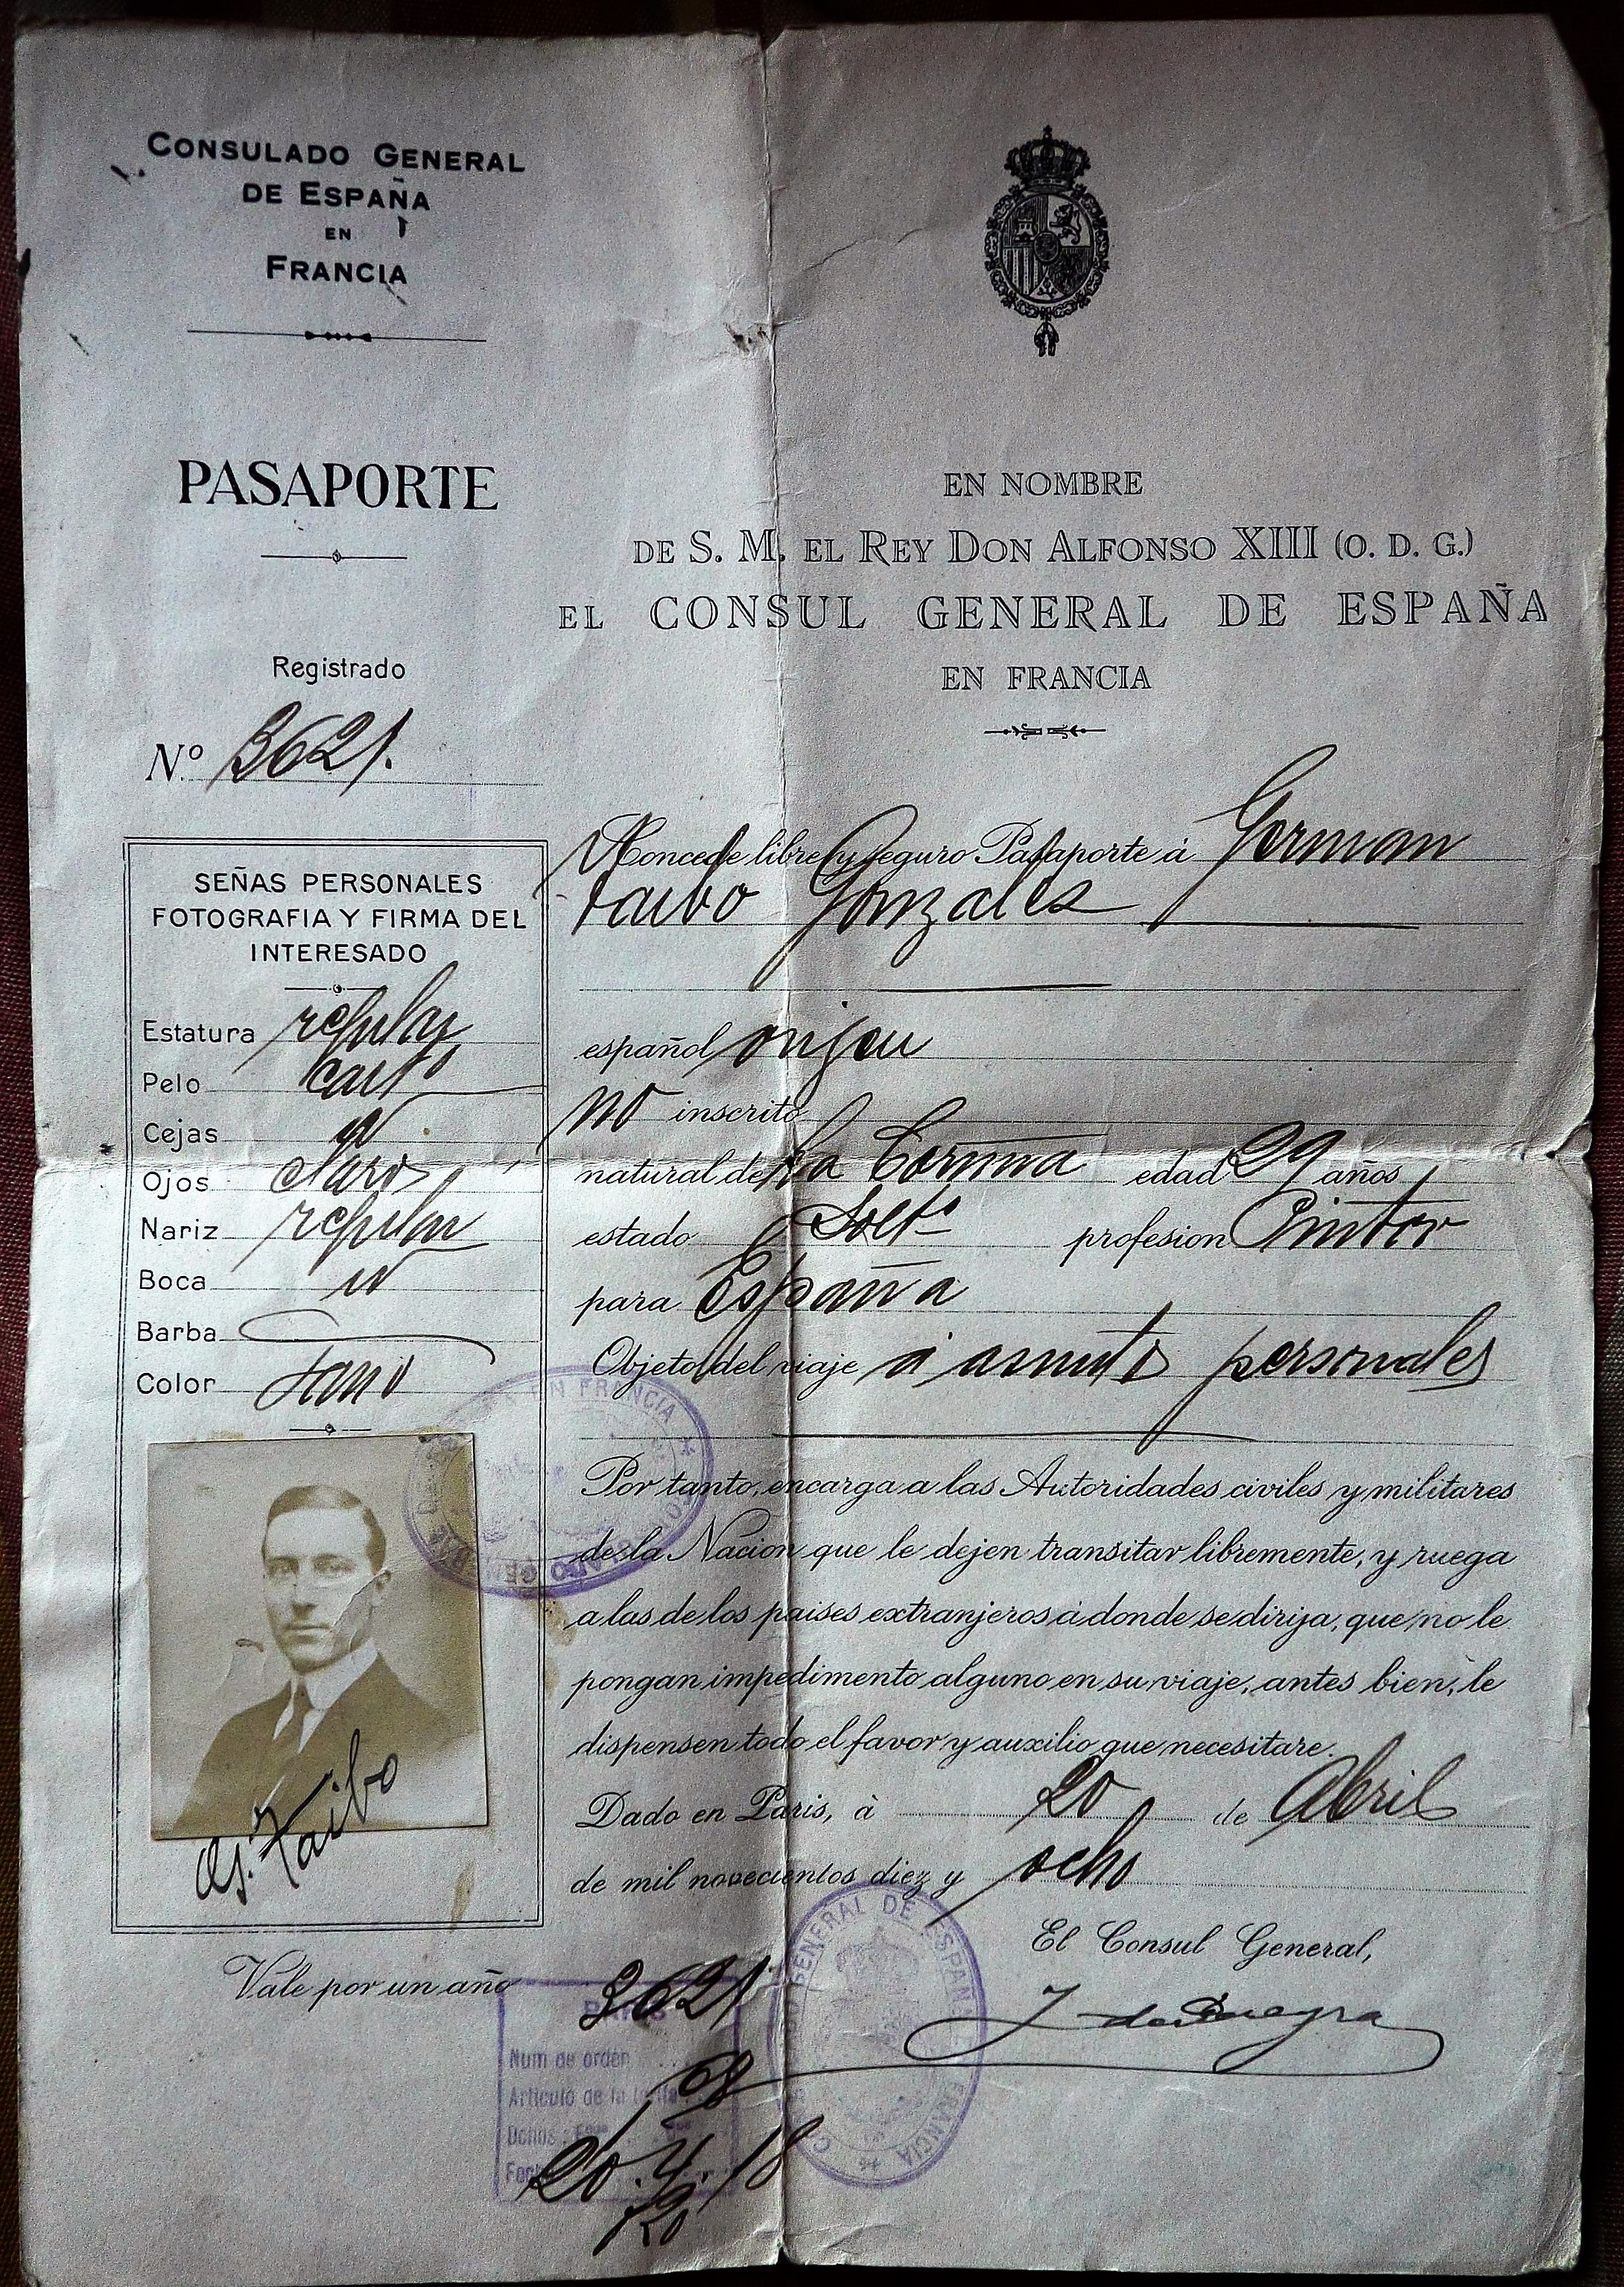 CONSULADO GENERAL
DE ESPAÑA
EN
FRANCIA
PASAPORTE
Registrado
Nº 3621.
SEÑAS PERSONALES
FOTOGRAFIA Y FIRMA DEL
INTERESADO
Estatura regular
Pelo casto
Cejas id
Ojos claros
Nariz regular
Boca id
Barba
Color sano
G. Taibo
Vale por un año
EN NOMBRE
DE S. M. EL REY DON ALFONSO XIII (O. D. G.)
EL CONSUL GENERAL DE ESPAÑA
EN FRANCIA
Concede libre y seguro Pasaporte á German
Taibo Gonzales
español origen
no inscrito
natural de La Coruña edad 29 años
estado Solto profesion Pintor
para España
Objeto del viaje á asuntos personales
Por tanto, encarga a las Autoridades civiles y militares
de la Nacion que le dejen transitar libremente, y ruega
a las de los paises extranjeros á donde se dirija, que no le
pongan impedimento alguno en su viaje, antes bien, le
dispensen todo el favor y auxilio que necesitare.
Dado en Paris, á 20 de Abril
de mil novecientos diez y ocho
El Consul General,
PARIS
3621
Num de orden
Articulo de la tarifa 68
20.4.18
CONSULADO GENERAL DE ESPAÑA EN FRANCIA